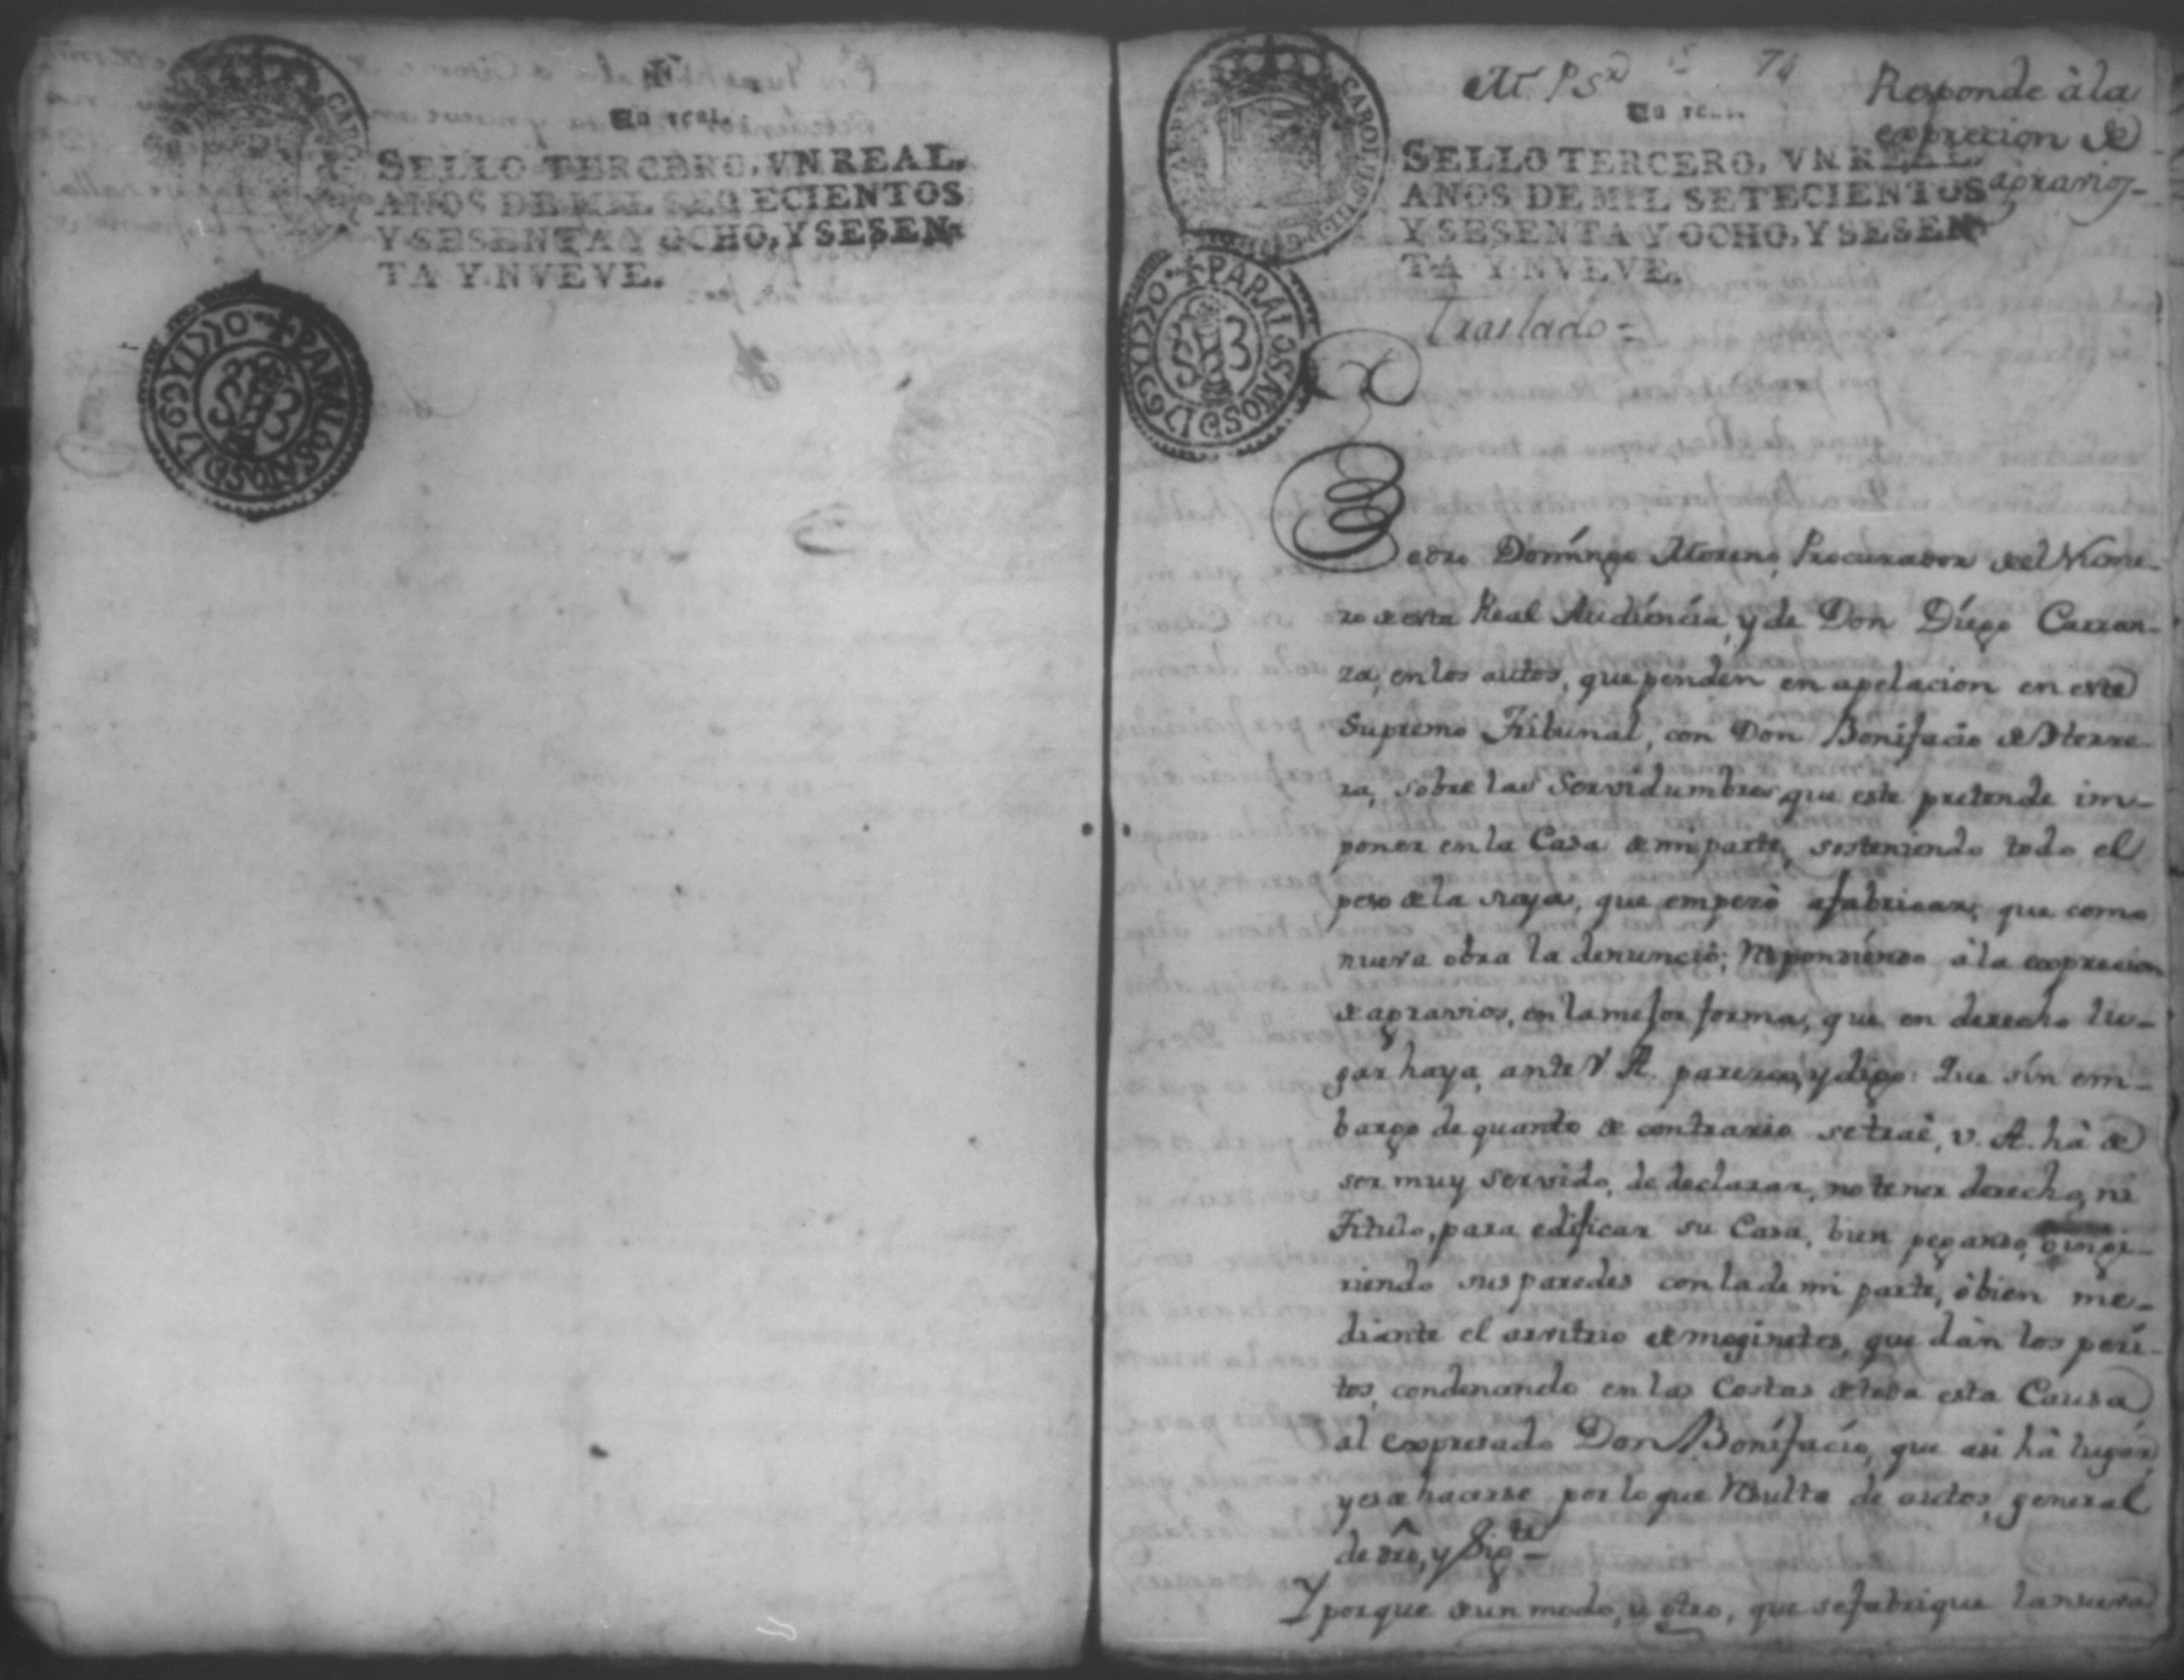 Un real.
SELLO TERCERO, VN REAL,
AÑOS DE MIL SETECIENTOS
Y SESENTA Y OCHO, Y SESEN-
TA Y NVEVE.
PARA LOS AÑOS D 1769 Y 1770
S 3
M. P. Sr
74
Responde à la
exprecion de
agravios-
Un real.
SELLO TERCERO, VN REAL,
AÑOS DE MIL SETECIENTOS
Y SESENTA Y OCHO, Y SESEN-
TA Y NVEVE.
CAROLVS III D
PARA LOS AÑOS D 1769 Y 1770
S 3
Traslado=
Pedro Domíngo Moreno, Procurador del Nume-
ro de esta Real Audiéncia, y de Don Díego Carran-
za, en los autos, que penden en apelacion en este
Supremo Tribunal, con Don Bonifacio de Herre-
ra, sobre las Servidumbres, que este pretende im-
poner en la Casa de mi parte, sosteniendo todo el
peso de la suya, que empezò a fabricar, que como
nueva obra la denunciò; respondiéndo à la exprecion
de agravios, en la mejor forma, que en derecho lu-
gar haya, ante V. A. parezco, y digo: Que sín em-
bargo de quanto de contrario se traè, v. A. hà de
ser muy servido, de declarar, no tener derecho, ni
Titulo, para edificar su Casa, bien pegando, ò inge-
riendo sus paredes con la de mi parte, ò bien me-
diante el arvitrio de moginetes, que dàn los perí-
tos, condenando en las Costas de toda esta Causa
al expresado Don Bonífacío, que asi hà lugar,
y es de hacerse por lo que resulta de autos, general
de dro, y sigte-
Y porque de un modo, u otro, que se fabrique la nueva